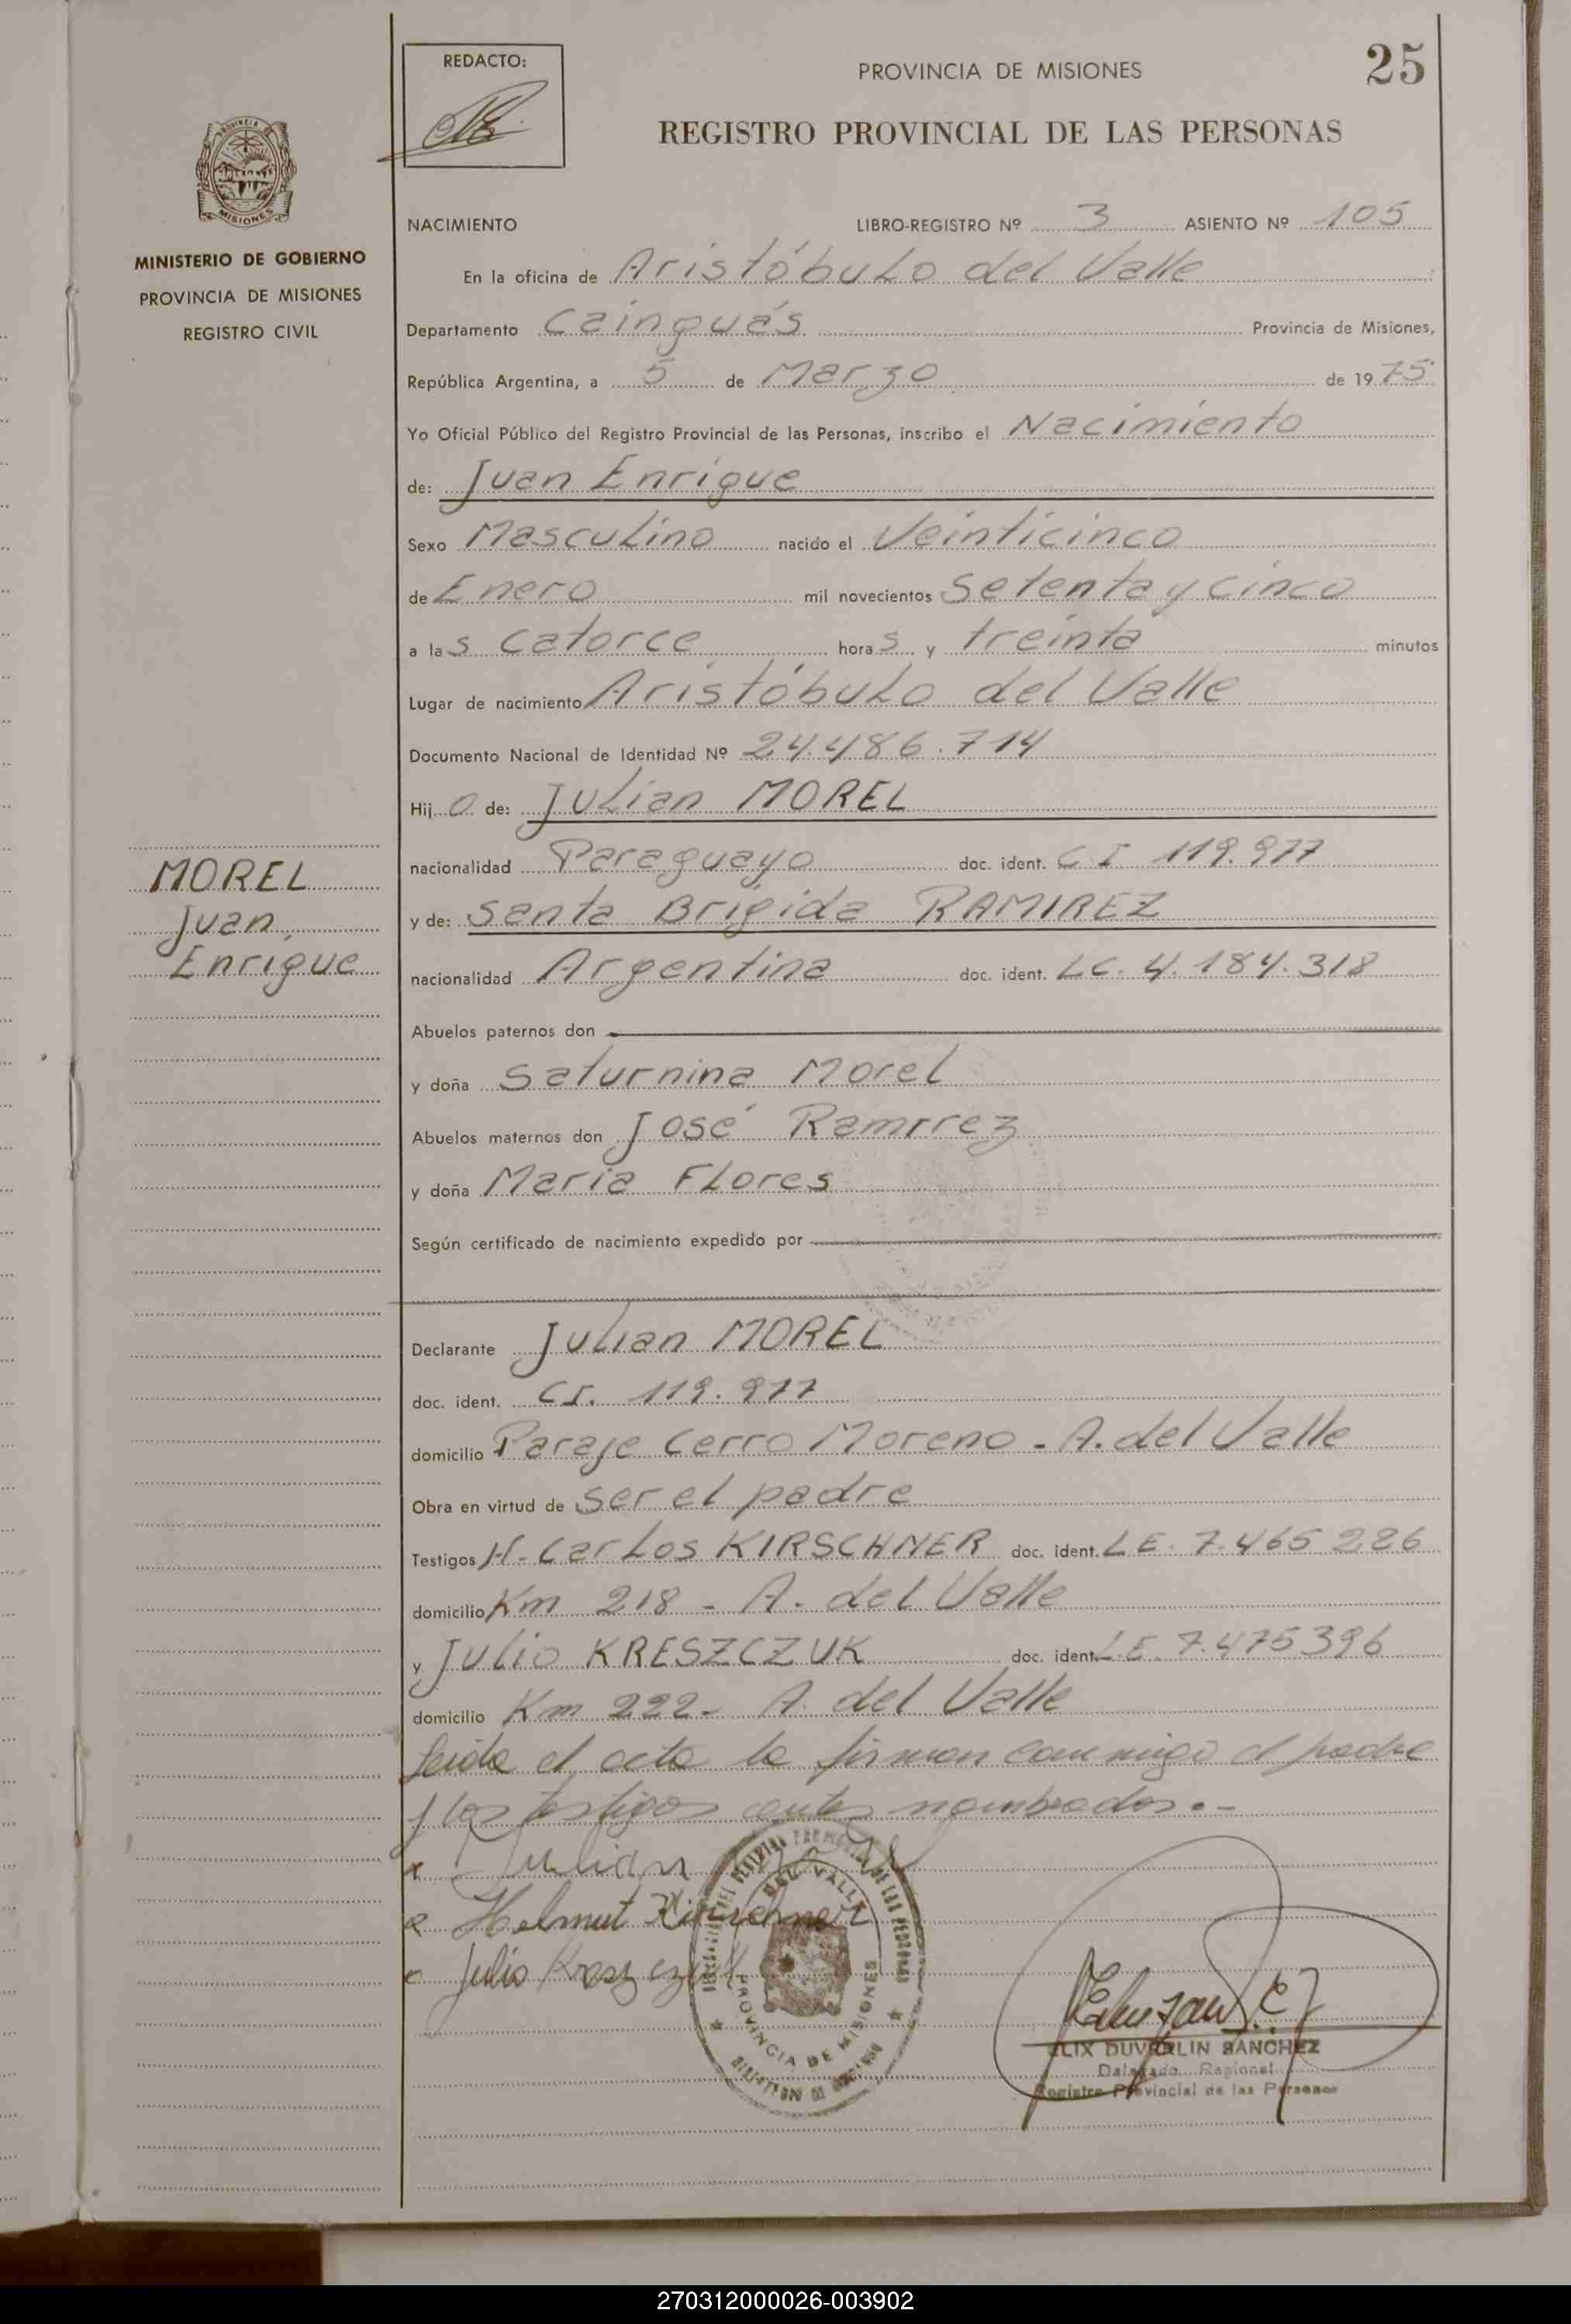 REDACTO:
PROVINCIA DE MISIONES
25
REGISTRO PROVINCIAL DE LAS PERSONAS
PROVINCIA DE
MISIONES
MINISTERIO DE GOBIERNO
PROVINCIA DE MISIONES
REGISTRO CIVIL
NACIMIENTO LIBRO-REGISTRO Nº 3 ASIENTO Nº 105
En la oficina de Aristóbulo del Valle
Departamento Cainguás Provincia de Misiones,
República Argentina, a 5 de Marzo de 1975
Yo Oficial Público del Registro Provincial de las Personas, inscribo el Nacimiento
de: Juan Enrique
Sexo Masculino nacido el Veinticinco
de Enero mil novecientos Setenta y cinco
a las catorce horas y treinta minutos
Lugar de nacimiento Aristóbulo del Valle
Documento Nacional de Identidad Nº 24.486.714
Hijo de: Julian MOREL
nacionalidad Paraguayo doc. ident. C I 119.977
MOREL
Juan
Enrique
y de: Santa Brigida RAMIREZ
nacionalidad Argentina doc. ident. LC. 4.184.318
Abuelos paternos don
y doña Saturnina Morel
Abuelos maternos don José Ramirez
y doña Maria Flores
Según certificado de nacimiento expedido por
Declarante Julian MOREL
doc. ident. CI. 119.977
domicilio Paraje Cerro Moreno - A. del Valle
Obra en virtud de ser el padre
Testigos H. Carlos KIRSCHNER doc. ident. LE. 7.465 226
domicilio Km 218 - A. del Valle
y Julio KRESZCZUK doc. ident. LE. 7.475396
domicilio Km 222- A. del Valle
leida el acta la firman conmigo el padre
y los testigos antes nombrados.-
Julian
Helmut Kirschner
Julio Kreszczuk
DEL VALLE
PROVINCIA DE MISIONES
ELIX DUVERLIN SANCHEZ
Delegado Regional
Registro Provincial de las Personas
270312000026-003902